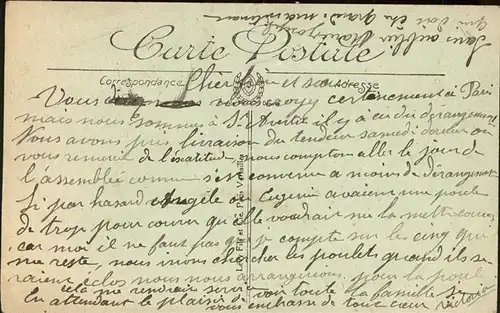 Sans oublier
qui doit être grand maintenant
Carte Postale
Correspondance
Adresse
Chère et
Vous nous croyez certainement à Paris
mais nous sommes à St Avertin il y a eu du dérangement
Nous avons pris livraison du tendeur samedi dernier on
vous remercie de l'exactitude, nous comptons aller le jour de
l'assemblée comme s'est convenu a moins de dérangement
Si par hasard Angèle ou Eugénie avaient une poule
de trop pour couver qu'elle voudrait me la mettre couver
car moi il ne faut pas que je compte sur les cinq qui
me reste, nous irons chercher les poulets quand ils se
raient éclos nous nous arrangerions pour la poule
cela me rendrait service
En attendant le plaisir de voir toute la famille je
vous embrasse de tout cœur Victorine